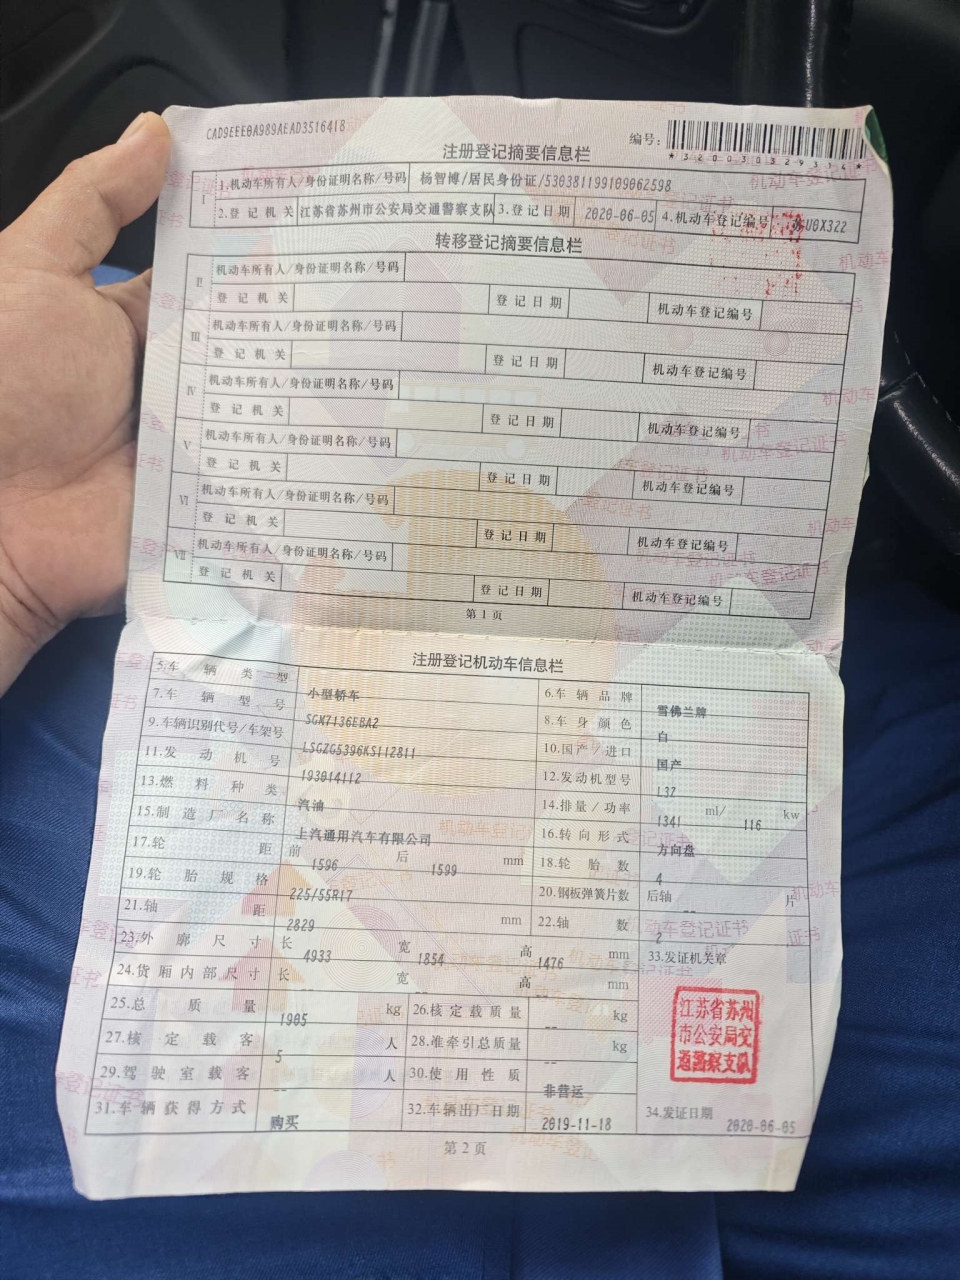 CAD9EEE0A989AEAD3516418
编号:
*320030329314*
注册登记摘要信息栏
I 1.机动车所有人/身份证明名称/号码 杨智博/居民身份证/530381199109062598
2.登记机关 江苏省苏州市公安局交通警察支队 3.登记日期 2020-06-05 4.机动车登记编号 苏U0X322
转移登记摘要信息栏
II 机动车所有人/身份证明名称/号码
登记机关 登记日期 机动车登记编号
III 机动车所有人/身份证明名称/号码
登记机关 登记日期 机动车登记编号
IV 机动车所有人/身份证明名称/号码
登记机关 登记日期 机动车登记编号
V 机动车所有人/身份证明名称/号码
登记机关 登记日期 机动车登记编号
VI 机动车所有人/身份证明名称/号码
登记机关 登记日期 机动车登记编号
VII 机动车所有人/身份证明名称/号码
登记机关 登记日期 机动车登记编号
第1页
注册登记机动车信息栏
5.车辆类型 小型轿车 6.车辆品牌 雪佛兰牌
7.车辆型号 SGM7136EBA2 8.车身颜色 白
9.车辆识别代号/车架号 LSGZG5396KS112811 10.国产/进口 国产
11.发动机号 193014112 12.发动机型号 L3Z
13.燃料种类 汽油 14.排量/功率 1341 ml/ 116 kw
15.制造厂名称 上汽通用汽车有限公司 16.转向形式 方向盘
17.轮距 前 1596 后 1599 mm 18.轮胎数 4
19.轮胎规格 225/55R17 20.钢板弹簧片数 后轴 -- 片
21.轴距 2829 mm 22.轴数 2
23.外廓尺寸 长 4933 宽 1854 高 1476 mm 33.发证机关章
24.货厢内部尺寸 长 -- 宽 -- 高 -- mm
25.总质量 1905 kg 26.核定载质量 -- kg
27.核定载客 5 人 28.准牵引总质量 -- kg
29.驾驶室载客 -- 人 30.使用性质 非营运
31.车辆获得方式 购买 32.车辆出厂日期 2019-11-18 34.发证日期 2020-06-05
江苏省苏州
市公安局交
通警察支队
第2页